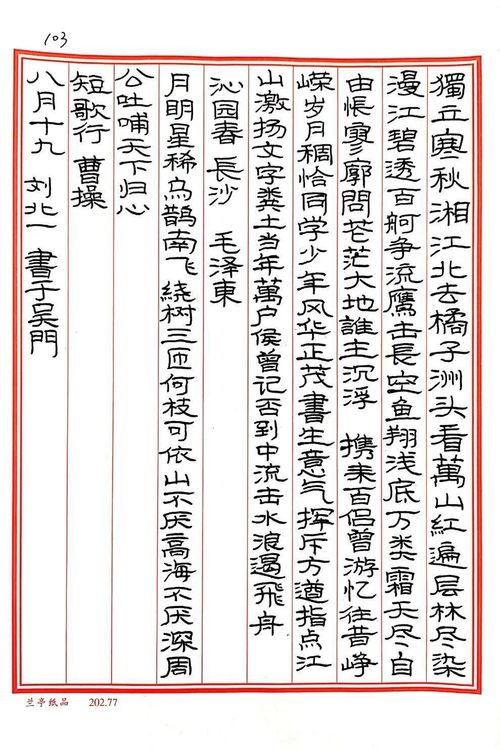 103
獨立寒秋湘江北去橘子洲头看萬山紅遍层林尽染
漫江碧透百舸争流鹰击長空鱼翔浅底万类霜天尽自
由怅寥廓問茫茫大地誰主沉浮 携来百侣曾游忆往昔峥
嵘岁月稠恰同学少年风华正茂書生意气挥斥方遒指点江
山激扬文字粪土当年萬户侯曾记否到中流击水浪遏飛舟
沁园春 長沙 毛泽東
月明星稀乌鹊南飞 绕树三匝何枝可依山不厌高海不厌深周
公吐哺天下归心
短歌行 曹操
八月十九 刘北一 書于吴門
兰亭纸品 202.77